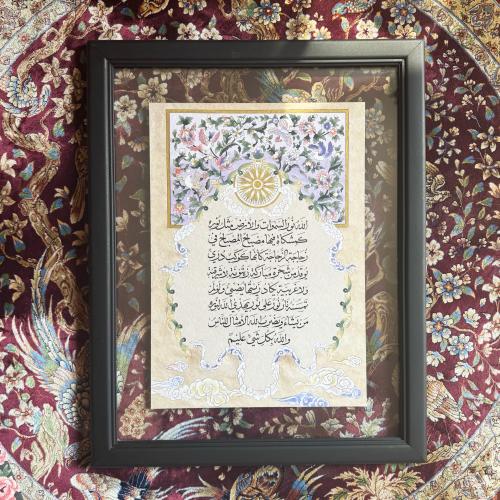 الله نور السموات والأرض مثل نوره
كمشكاة فيها مصباح المصباح في
زجاجة الزجاجة كأنها كوكب دري
يوقد من شجرة مباركة زيتونة لا شرقية
ولا غربية يكاد زيتها يضيئ ولو لم
تمسسه نار نور على نور يهدي الله لنوره
من يشاء ويضرب الله الأمثال للناس
والله بكل شيئ عليم